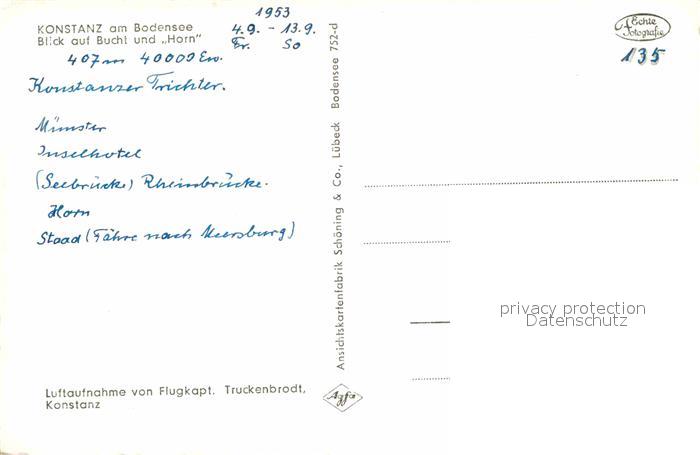 1953
KONSTANZ am Bodensee 4.9. - 13.9.
Blick auf Bucht und „Horn" Fr. So
407m 40000 Ew.
Konstanzer Trichter.
Münster
Inselhotel
(Seebrücke) Rheinbrücke.
Horn
Staad (Fähre nach Meersburg)
Luftaufnahme von Flugkapt. Truckenbrodt,
Konstanz
Ansichtskartenfabrik Schöning & Co., Lübeck Bodensee 752-d
Agfa
Echte
Fotografie
135
privacy protection
Datenschutz